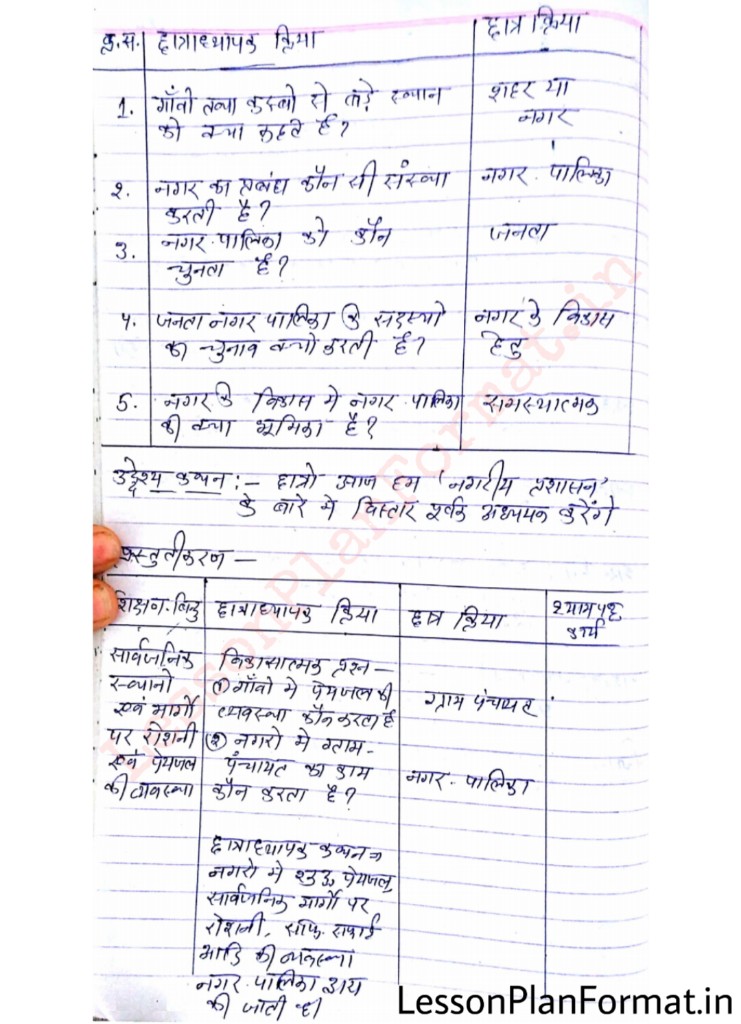 क्र.स. छात्राध्यापक क्रिया छात्र क्रिया
1. गाँवो तथा कस्बो से बड़े स्थान शहर या
को क्या कहते है? नगर
2. नगर का प्रबंध कौन सी संस्था नगर-पालिका
करती है?
3. नगर-पालिका को कौन जनता
चुनता है?
4. जनता नगर पालिका के सदस्यो नगर के विकास
का चुनाव क्यो करती है? हेतु
5. नगर के विकास मे नगर-पालिका समस्यात्मक
की क्या भूमिका है?
उद्देश्य कथन :- छात्रो आज हम 'नगरीय प्रशासन'
के बारे मे विस्तार पूर्वक अध्ययन करेंगे
प्रस्तुतीकरण —
शिक्षण-बिंदु छात्राध्यापक क्रिया छात्र क्रिया श्यामपट्ट
कार्य
सार्वजनिक विकासात्मक प्रश्न —
स्थानो ① गाँवो मे पेयजल की
एवं मार्गो व्यवस्था कौन करता है ग्राम पंचायत
पर रोशनी ② नगरो मे ग्राम-
एवं पेयजल पंचायत का काम नगर-पालिका
की व्यवस्था कौन करता है?
छात्राध्यापक कथन
नगरो मे पेयजल,
सार्वजनिक मार्गो पर
रोशनी, सफाई
आदि की व्यवस्था
नगर-पालिका द्वारा
की जाती है।
LessonPlanFormat.in
LessonPlanFormat.in